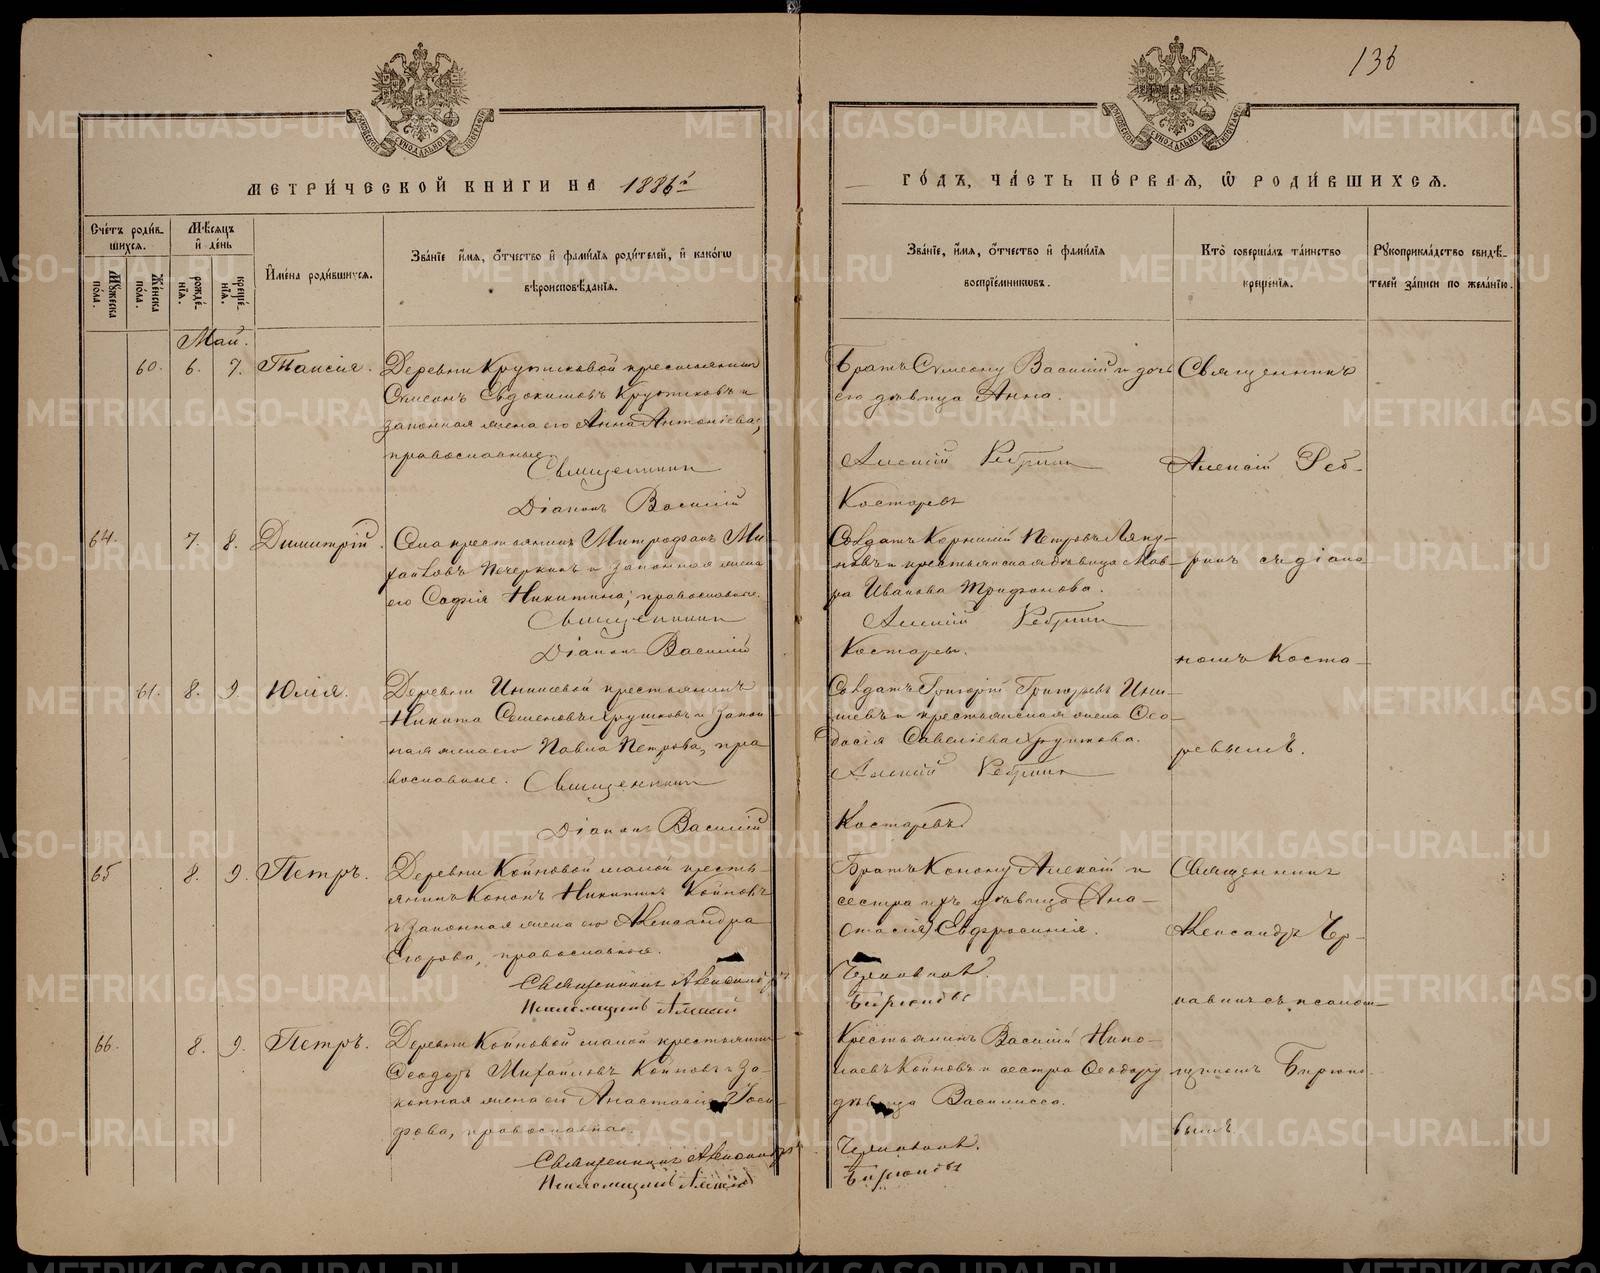 136
МЕТРИ́ЧЕСКОЙ КНИГИ НА 1886й
ГО́ДЪ, ЧА́СТЬ ПЕ́РВАЯ, Ѡ РОДИ́ВШИХСЯ.
Сче́тъ роди́в-
шихся.
Мѣ́сяцъ
и҆ де́нь
Мꙋ́жеска
по́ла.
Же́нска
по́ла.
рожде́-
нїя.
креще́-
нїя.
И҆мена̀ роди́вшихся.
Зва́нїе и҆́мя, ѻ҆́тчество и҆ фами́лїя роди́телей, и҆ како́гѡ
вѣроисповѣ́данїя.
Зва́нїе, и҆́мя, ѻ҆́тчество и҆ фами́лїя
воспрїе́мникѡвъ.
Кто̀ соверша́лъ та́инство
креще́нїя.
Рꙋкоприкла́дство свидѣ́-
телей за́писи по жела́нїю.
Май.
60. 6. 7. Таисія. Деревни Крутиховой крестьянинъ
Симеонъ Евдокимовъ и
законная жена его Анна Антоніева,
православные.
Священникъ
Діаконъ Василій
Братъ Симеону Василій и дочь
его дѣвица Анна.
Алексій Ребринъ
Костаревъ
Священникъ
Алексій Реб-
64. 7. 8. Димитрій. Села крестьянинъ Митрофанъ Ми-
хайловъ Печеркинъ и законная жена
его Софія Никитина; православные.
Священникъ
Діаконъ Василій
Солдатъ Корнилій Петровъ Ляпу-
новъ и крестьянская дѣвица Мав-
ра Иванова Трифонова.
Алексій Ребринъ
Костаревъ.
ринъ съ діако
номъ Коста-
61. 8. 9. Юлія. Деревни крестьянинъ
Никита Семеновъ и закон
ная жена его Павла Петрова, пра
вославные.
Священникъ
Діаконъ Василій
Солдатъ Григорій Григорьевъ
и крестьянская жена Ѳео-
досія Савеліева
Алексій Ребринъ
Костаревъ
ревымъ.
65 8. 9. Петръ. Деревни Койновой малой кресть-
янинъ Кононъ Никитинъ Койновъ
и законная жена его Александра
Егорова, православные.
Священникъ Александръ
Псаломщикъ Алексій
Братъ Конону Алексій и
сестра ихъ дѣвица Ана-
стасія Евфросинія.
Бирюковъ
Священникъ
Александръ Чер-
кавинъ съ псалом-
66. 8. 9. Петръ. Деревни Койновой малой крестьянинъ
Ѳеодоръ Михайловъ Койновъ и за-
конная жена его Анастасія Іоси-
фова, православные.
Священникъ Александръ
Псаломщикъ Алексій
Крестьянинъ Василій Нико-
лаевъ Койновъ и сестра Ѳеодору
дѣвица Василисса.
Бирюковъ
щикомъ Бирюко-
вымъ.
METRIKI.GASO-URAL.RU